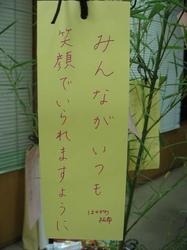 みんながいつも
笑顔でいられますように